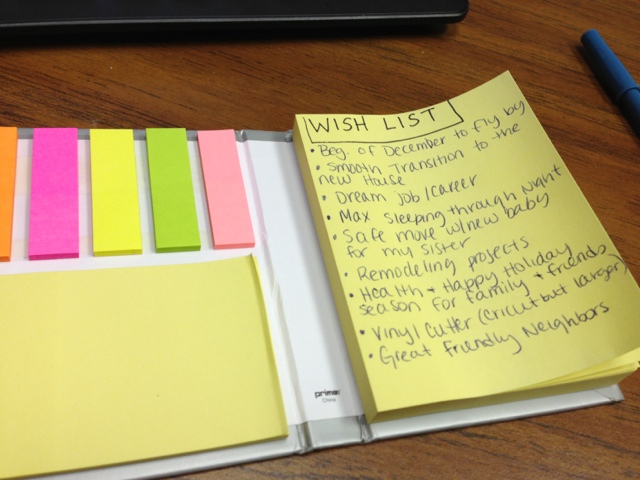 WISH LIST
• Beg. of December to fly by
• Smooth Transition to the
new House
• Dream job/career
• Max Sleeping through Night
• Safe move w/new baby
for my sister
• Remodeling projects
• Health + Happy Holiday
season for family + friends
• Vinyl Cutter (Cricut but larger)
• Great friendly Neighbors
China